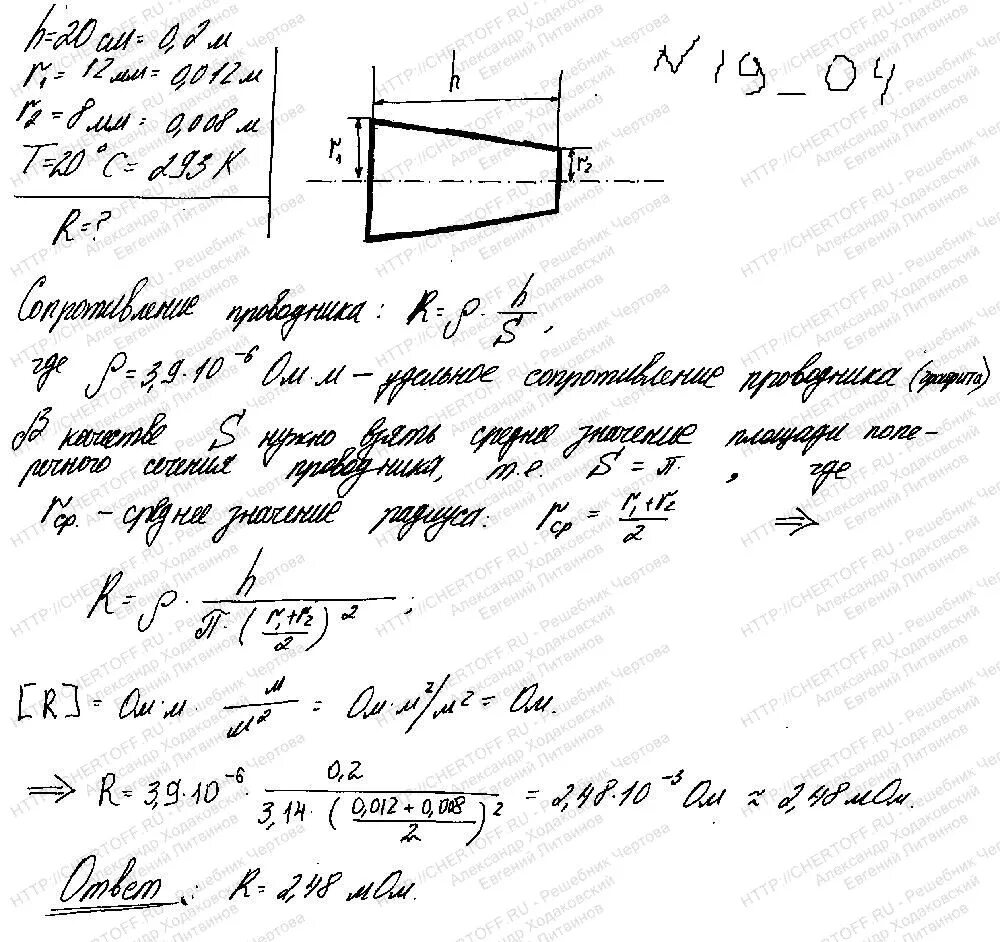 h=20 см = 0,2 м
r₁ = 12 мм = 0,012 м
r₂ = 8 мм = 0,008 м
T=20°C = 293 К
R=?
h
r₁
r₂
N 19_04
Сопротивление проводника: R=ρ·h/S,
где ρ = 3,9·10⁻⁶ Ом·м – удельное сопротивление проводника (графита)
В качестве S нужно взять среднее значение площади попе-
речного сечения проводника, т.е. S = π. , где
rср. – среднее значение радиуса: rср = (r₁+r₂)/2 ⇒
R=ρ·h/(π·((r₁+r₂)/2)²);
[R] = Ом·м·м/м² = Ом·м²/м² = Ом.
⇒ R= 3,9·10⁻⁶·0,2/(3,14·((0,012+0,008)/2)²) = 2,48·10⁻³ Ом ≈ 2,48 мОм.
Ответ: R= 2,48 мОм.
HTTP://CHERTOFF.RU - Решебник Чертова
Александр Ходаковский
Евгений Литвинов